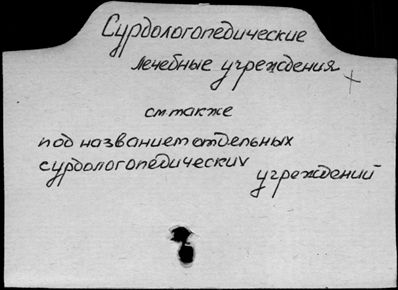 Сурдологопедические
лечебные учреждения
см также
под названием отдельных
сурдологопедических
учреждений